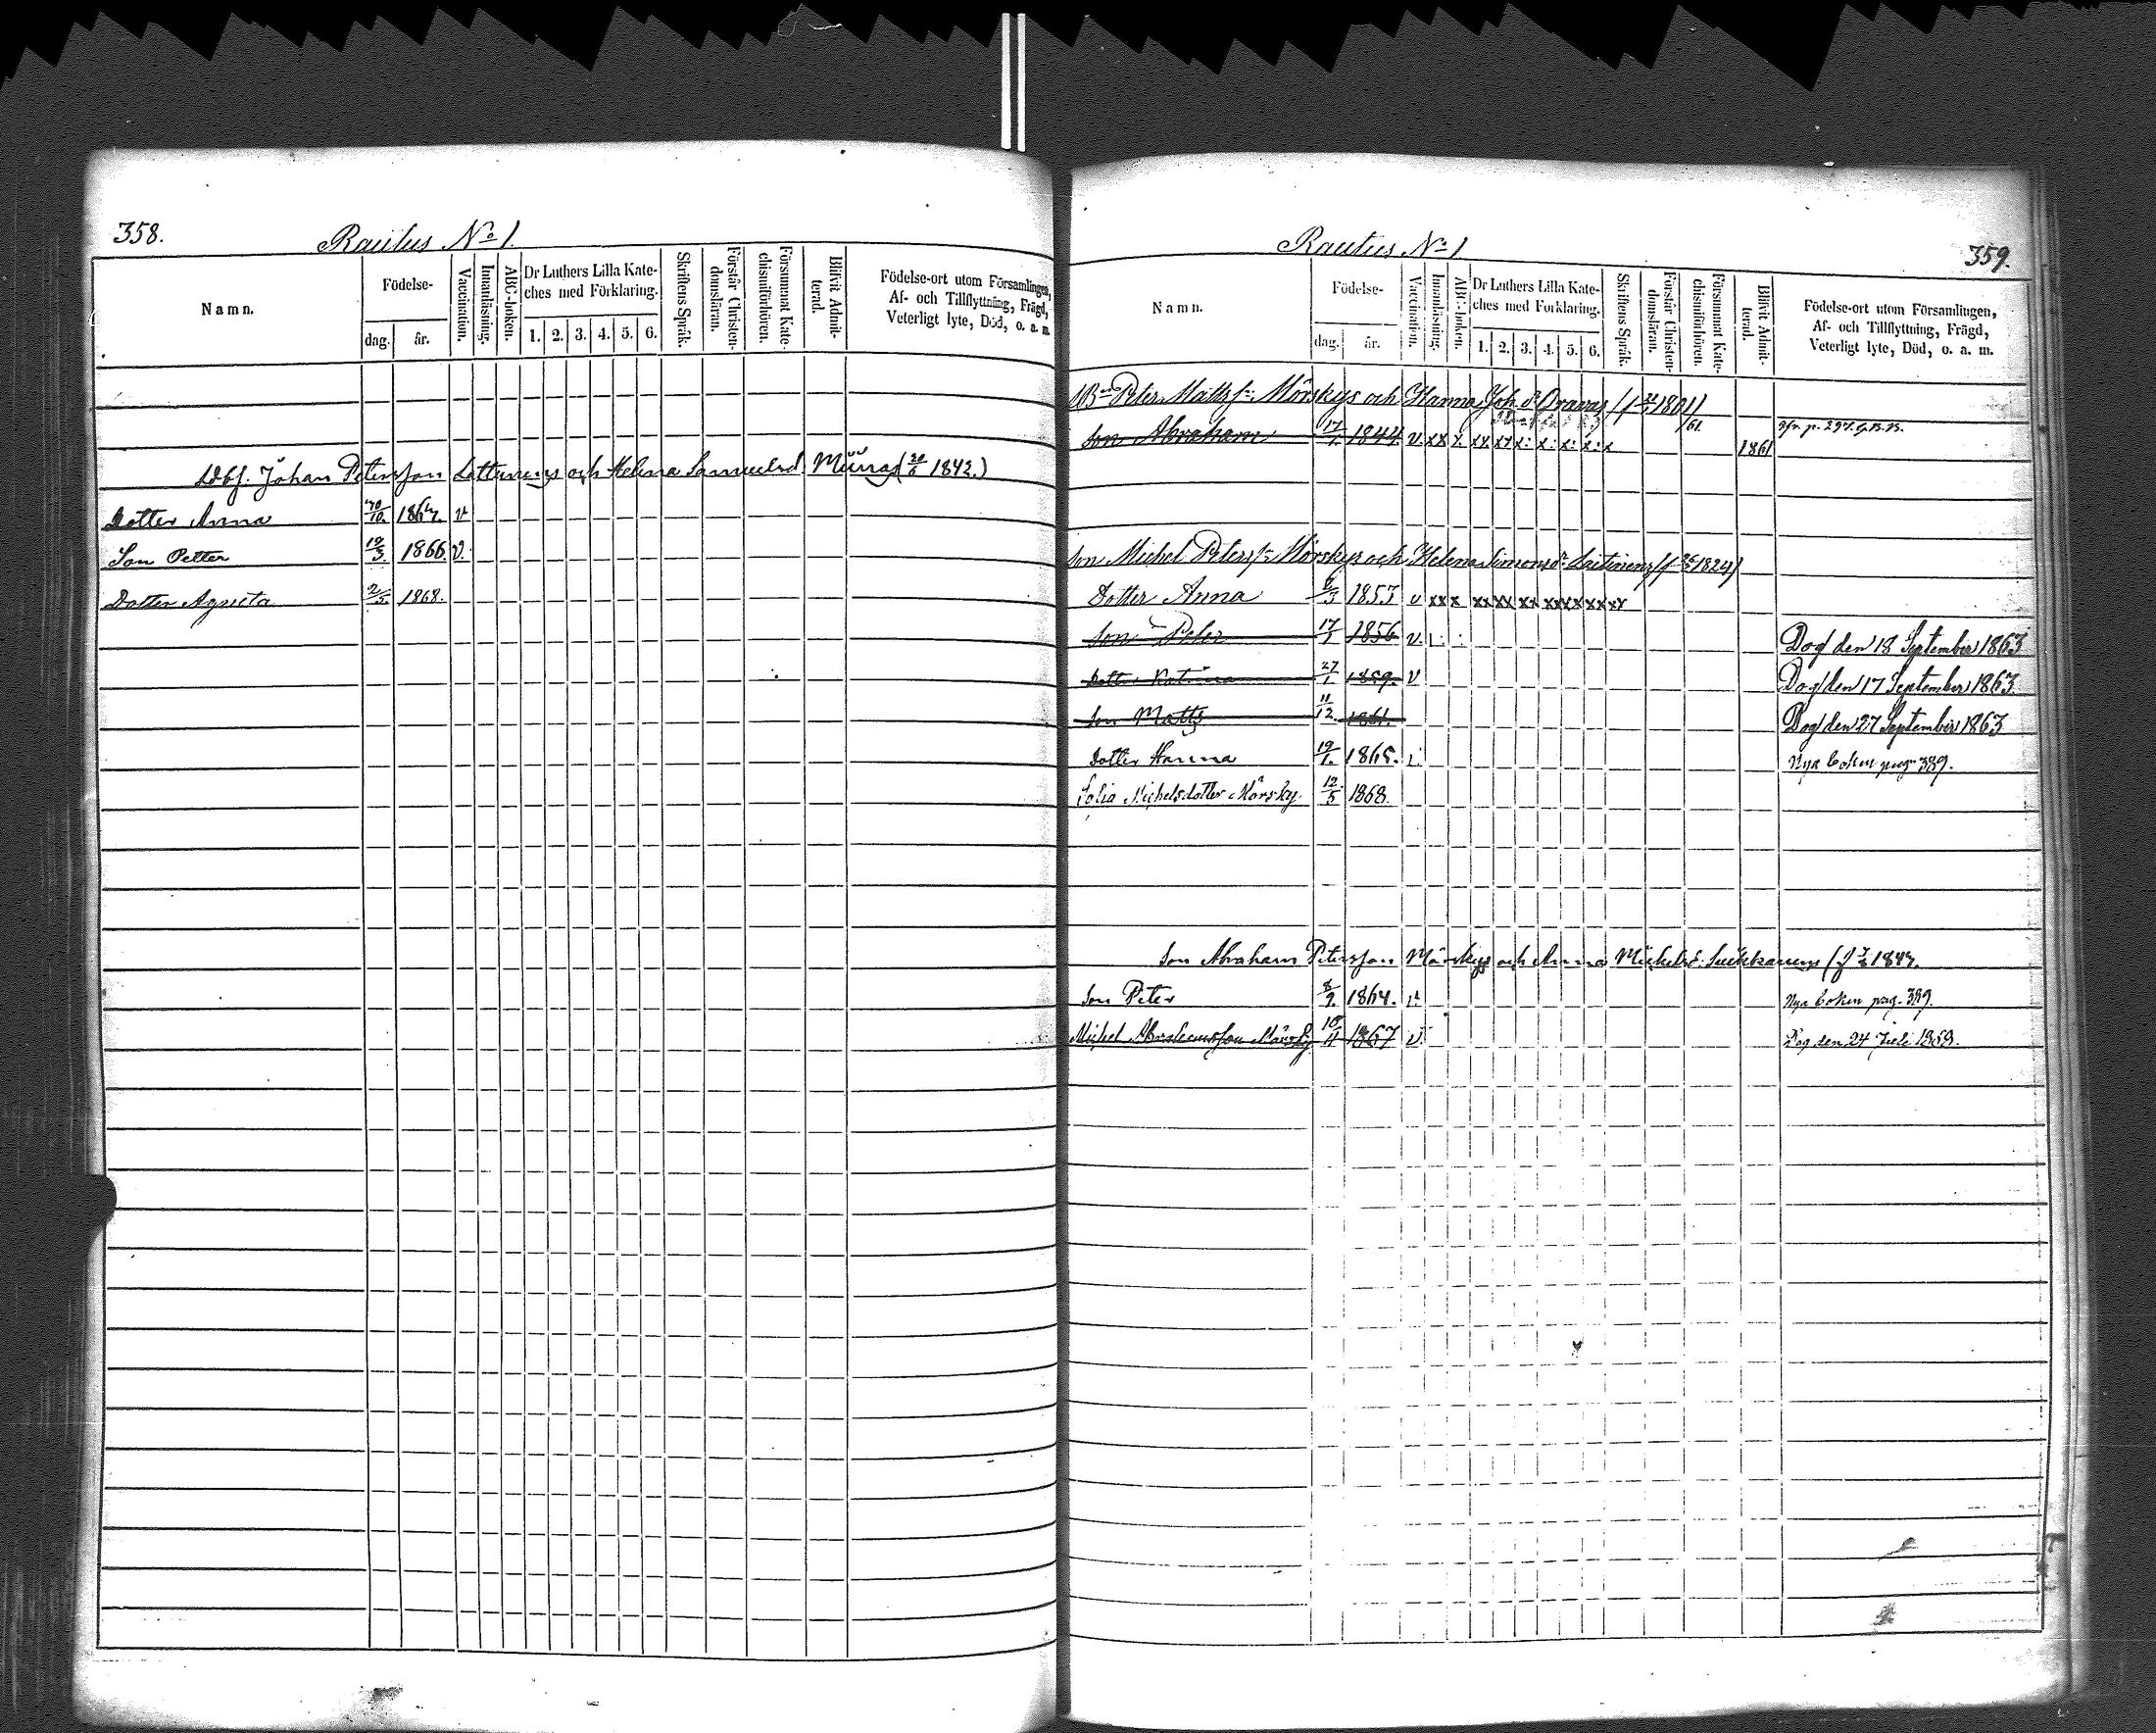 358.
Rautus No 1.
Namn.
Födelse-
dag.
år.
Vaccination.
Innanläsning.
ABC-boken.
Dr Luthers Lilla Kate-
ches med Förklaring.
1. 2. 3. 4. 5. 6.
Skriftens Språk.
Förstår Christen-
domsläran.
Försummat Kate-
chismiförhören.
Blifvit Admit-
terad.
Födelse-ort utom Församlingen,
Af- och Tillflyttning, Frägd,
Veterligt lyte, Död, o. a. m.
Johan Petersson och Helena Samuelsd. (20/6 1842.)
Dotter Anna 1864. v
Son Petter 19/3 1866. v.
Dotter Agneta 2/5 1868.
Rautus No 1
359.
Namn.
Födelse-
dag.
år.
Vaccination.
Innanläsning.
ABC-boken.
Dr Luthers Lilla Kate-
ches med Förklaring.
1. 2. 3. 4. 5. 6.
Skriftens Språk.
Förstår Christen-
domsläran.
Försummat Kate-
chismiförhören.
Blifvit Admit-
terad.
Födelse-ort utom Församlingen,
Af- och Tillflyttning, Frägd,
Veterligt lyte, Död, o. a. m.
Peter Matts Mörskys och Hanna Joh. d. Oravas 1801)
Son Abraham 1844 v xx x xx xx x x x x x 61. 1861
Son Michel Peters Mörskys och Helena Simons d. 1824)
Dotter Anna 6/3 1853 v xx x xx xx xx xx x xx xx
Son Peter 1856 v.
Dog den 18 September 1863
Dotter Katrina 27/1 1859. v
Dog den 17 September 1863
Son Matts 11/12. 1861.
Dog den 27 September 1863
Dotter Hanna 19/1. 1865.
Nya boken pag 389.
Sofia Michelsdotter Mörsky. 12/5 1868.
Son Abraham Petersson Mörskys och Anna Michelsd. 1844.
Son Peter 8/9. 1864. v.
Nya boken pag. 389.
Michel Abrahamsson Mörsky 1867 v.
Dog den 24 Juli 1868.